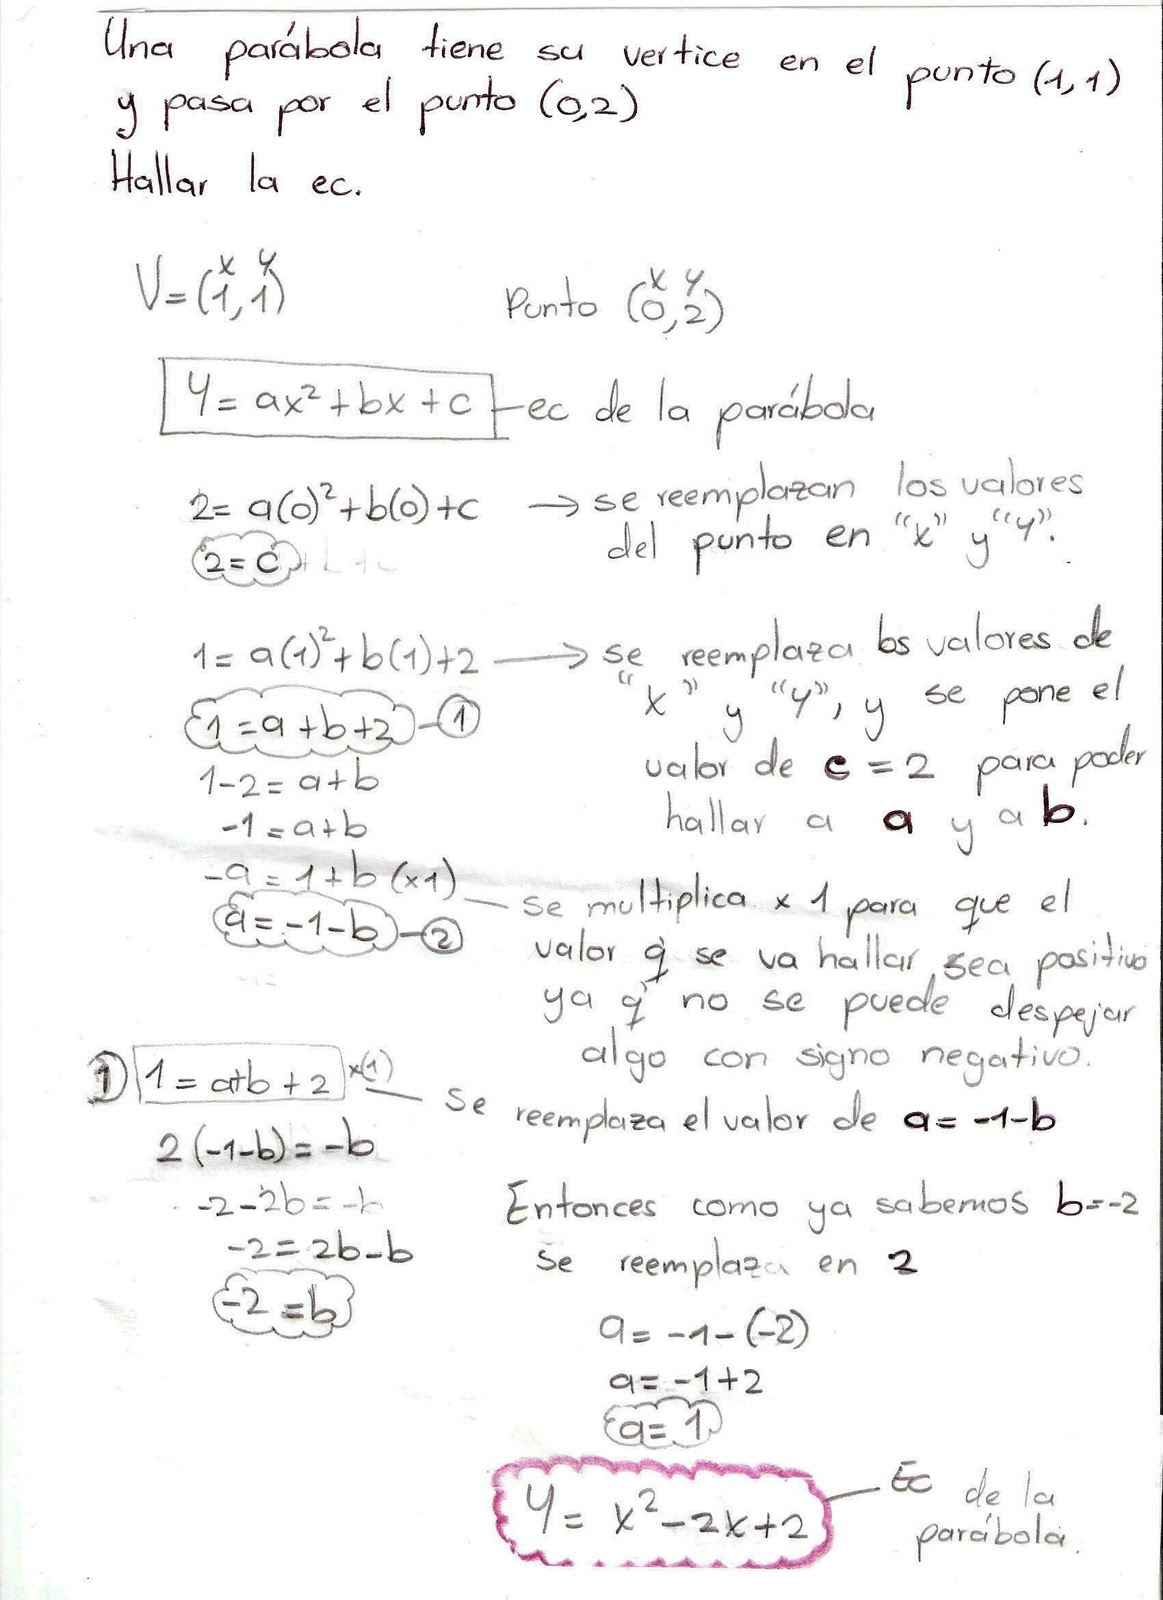 Una parábola tiene su vertice en el punto (1,1)
y pasa por el punto (0,2)
Hallar la ec.
x y
V=(1,1)
x y
Punto (0,2)
Y = ax²+bx+c
ec de la parábola
2= a(0)²+b(0)+c → se reemplazan los valores
del punto en "x" y "Y".
2=c
1= a(1)²+b(1)+2 → se reemplaza los valores de
"x" y "Y", y se pone el
valor de c=2 para poder
hallar a a y a b.
1=a+b+2 - 1
1-2= a+b
-1=a+b
-a = 1+b (x1)
a= -1-b - 2
se multiplica x 1 para que el
valor q se va hallar, sea positivo
ya q no se puede despejar
algo con signo negativo.
1 1 = a+b+2 x(1)
Se reemplaza el valor de a= -1-b
2(-1-b)=-b
-2-2b=-b
-2=2b-b
-2=b
Entonces como ya sabemos b=-2
se reemplaza en 2
a= -1-(-2)
a= -1+2
a= 1
Y= x²-2x+2
Ec de la
parábola.